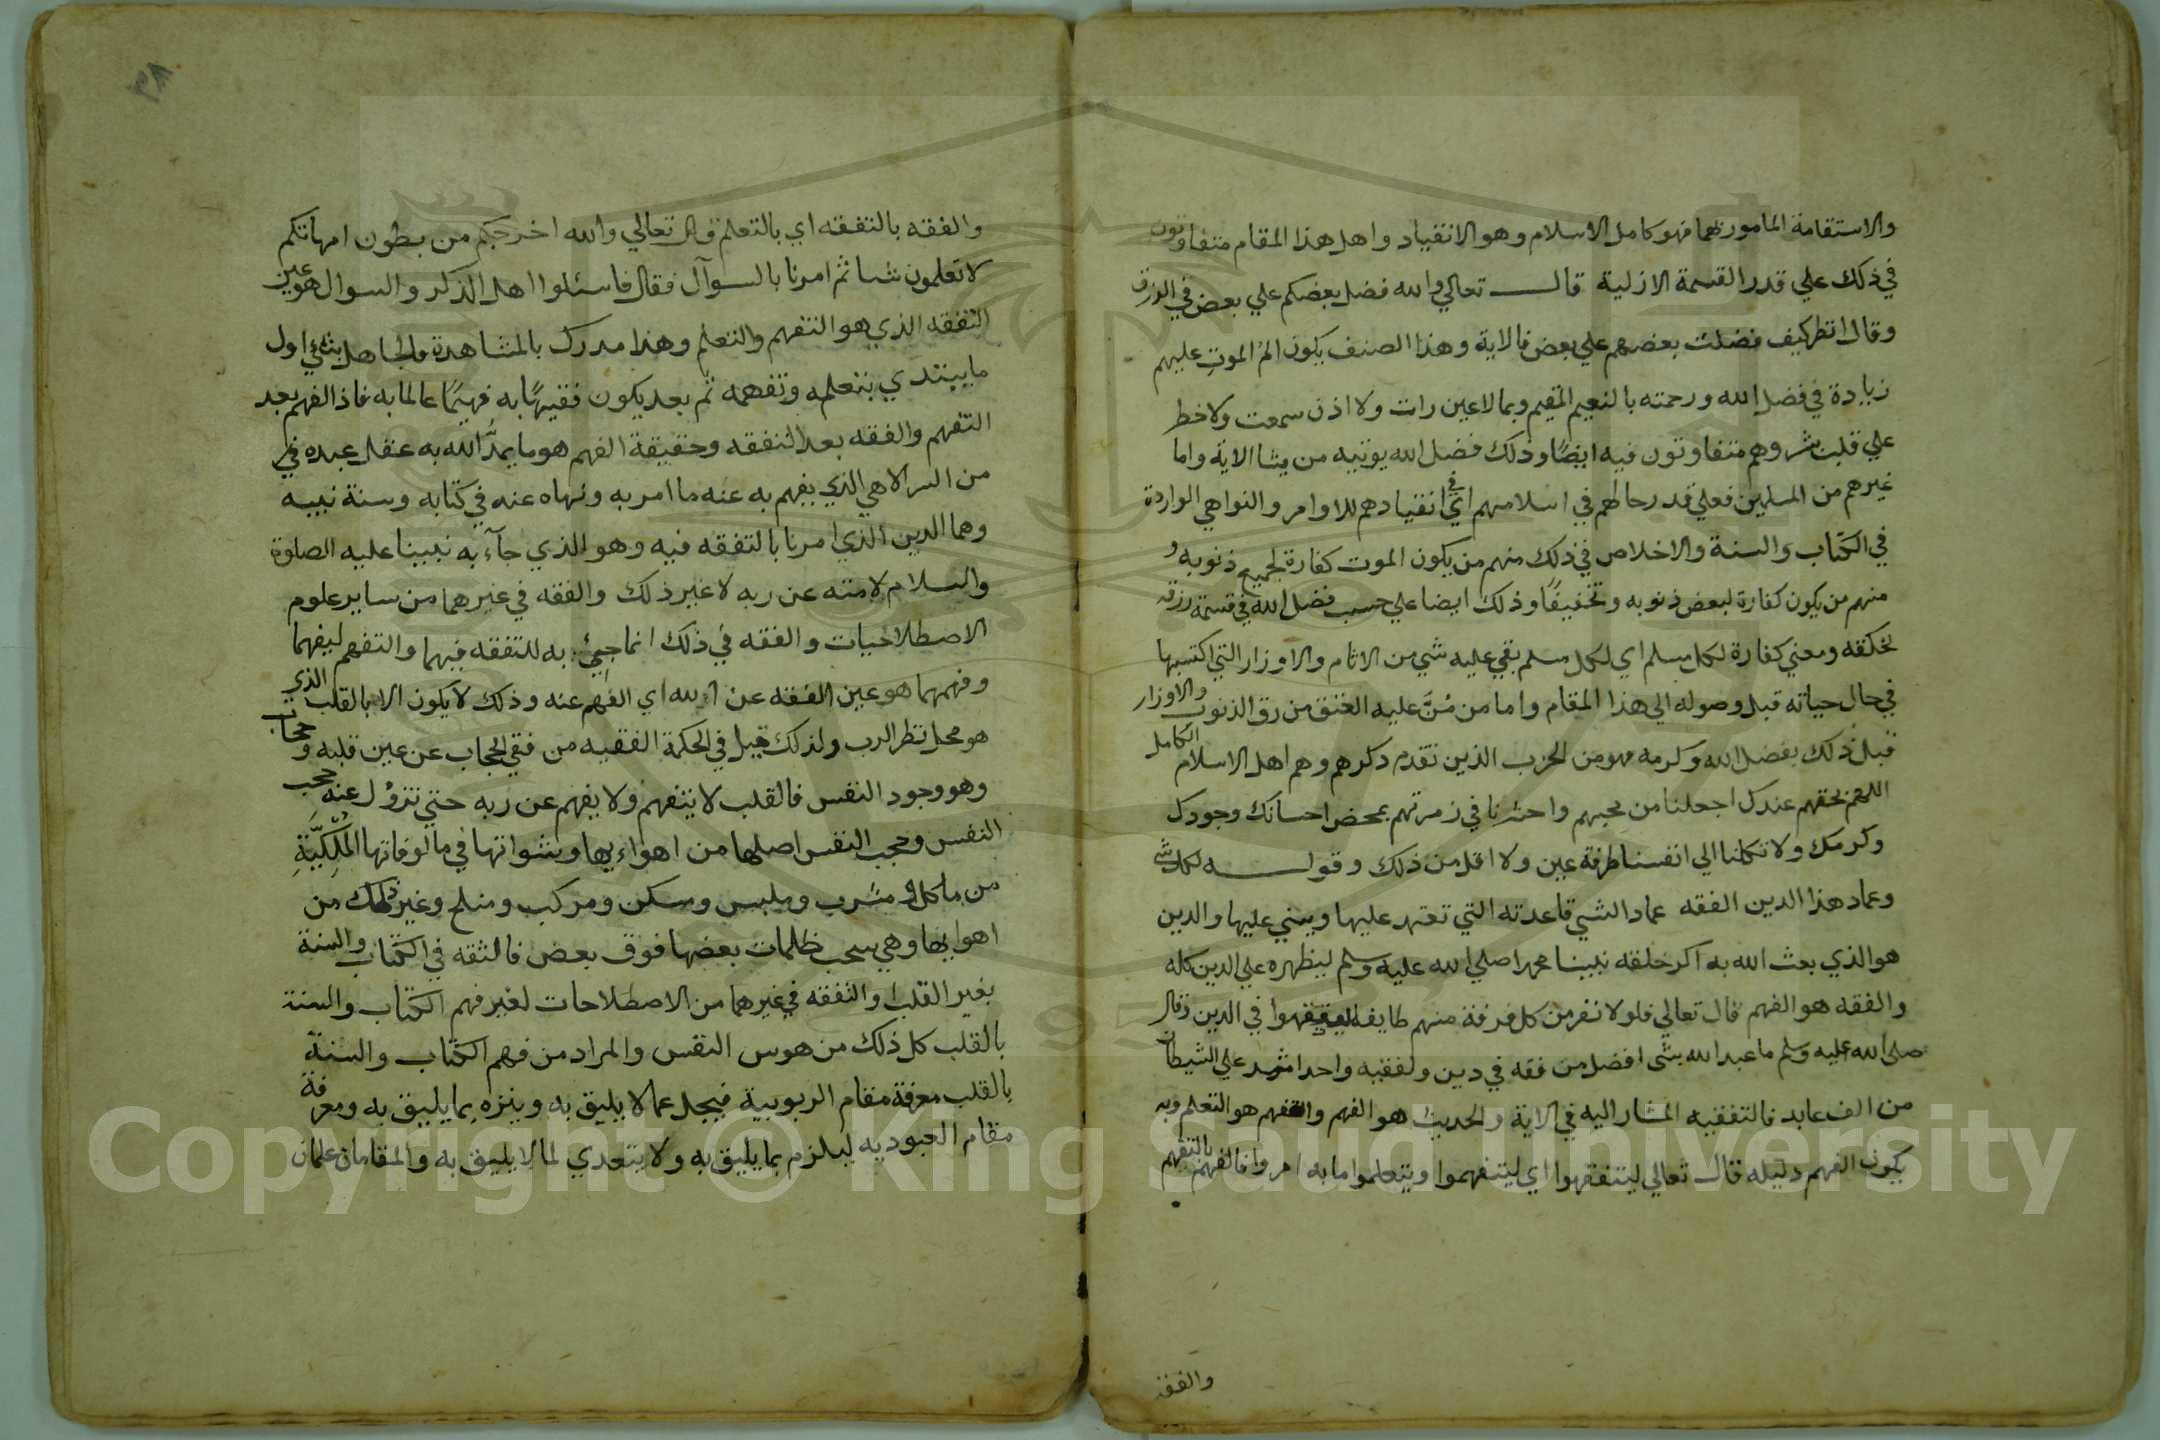 والاستقامة المامور بهما فهو كامل الاسلام وهو الانقياد واهل هذا المقام متفاوتون
في ذلك علي قدر القسمة الازلية قال تعالي والله فضل بعضكم علي بعض في الرزق
وقال انظر كيف فضلنا بعضهم علي بعض فالاية وهذا الصنف يكون الم الموت عليهم
زيادة في فضل الله ورحمته بالنعيم المقيم وبما لاعين رات ولا اذن سمعت ولا خطر
علي قلب بشر وهم متفاوتون فيه ايضًا وذلك فضل الله يوتيه من يشا الاية واما
غيرهم من المسلمين فعلي قدر حالهم في اسلامهم اي في انقيادهم للاوامر والنواهي الواردة
في الكتاب والسنة والاخلاص في ذلك منهم من يكون الموت كفارة لجميع ذنوبه و
منهم من يكون كفارة لبعض ذنوبه وتخفيفًا وذلك ايضا علي حسب فضل الله في قسمة رزقه
لخلقه ومعني كفارة لكل مسلم اي لكل مسلم بقي عليه شي من الاثام والاوزار التي اكتسبها
في حال حياته قبل وصوله الي هذا المقام واما من مُنَّ عليه العتق من رق الذنوب والاوزار
قبل ذلك بفضل الله وكرمه فهو من الحزب الذين تقدم ذكرهم وهم اهل الاسلام الكامل
اللهم بحقهم عندك اجعلنا من محبيهم واحشرنا في زمرتهم بمحض احسانك وجودك
وكرمك ولا تكلنا الي انفسنا طرفة عين ولا اقل من ذلك وقوله لكل شي
وعماد هذا الدين الفقه عماد الشي قاعدته التي تعتمد عليها ويبني عليها والدين
هو الذي بعث الله به اكرم خلقه نبينا محمدا صلي الله عليه وسلم ليظهره علي الدين كله
والفقه هو الفهم قال تعالي فلولا نفر من كل فرقة منهم طايفة ليتفقهوا في الدين وقال
صلي الله عليه وسلم ما عبد الله بشي افضل من فقه في دين ولفقيه واحد اشد علي الشيطان
من الف عابد فالتفقيه المشار اليه في الاية والحديث هو الفهم والتفهم هو التعلم وبه
يكون الفهم دليله قال تعالي ليتفقهوا اي ليتفهموا ويتعلموا ما به امروا فالفهم بالتفهم
والفقه
٣٨
والفقه بالتفقه اي بالتعلم قال تعالي والله اخرجكم من بطون امهاتكم
لا تعلمون شيا ثم امرنا بالسوآل فقال فاسئلوا اهل الذكر والسوال هو عين
التفقه الذي هو التفهم والتعلم وهذا مدرك بالمشاهدة فالجاهل بشئ اول
ما يبتدي بتعلمه وتفهمه ثم بعد يكون فقيهًا به فهيمًا عالما به فاذا الفهم بعد
التفهم والفقه بعد التفقه وحقيقة الفهم هو ما يمدُّ الله به عقل عبده في
من السر الاهي الذي يفهم به عنه ما امر به ونهاه عنه في كتابه وسنة نبيه
وهما الدين الذي امرنا بالتفقه فيه وهو الذي جآء به نبينا عليه الصلوة
والسلام لامته عن ربه لا غير ذلك والفقه في غيرهما من ساير علوم
الاصطلاحيات والفقه في ذلك انما جيئ به للتفقه فيهما والتفهم ليفهما
وفهمهما هو عين الفقه عن الله اي الفهم عنه وذلك لا يكون الا بالقلب الذي
هو محل نظر الرب ولذلك قيل في الحكمة الفقيه من فقئ الحجاب عن عين قلبه وحجاب
وهو وجود النفس فالقلب لا يتفهم ولا يفهم عن ربه حتي تزول عنه حجب
النفس وحجب النفس اصلها من اهواءيها وشهواتها في مالوفاتها المُلْكِيَّةِ
من ماكل ومشرب وملبس ومسكن ومركب ومنكح وغير ذلك من
اهوايها وهي سحب ظلمات بعضها فوق بعض فالتفقه في الكتاب والسنة
بغير القلب والتفقه في غيرهما من الاصطلاحات لغير فهم الكتاب والسنة
بالقلب كل ذلك من هوس النفس والمراد من فهم الكتاب والسنة
بالقلب معرفة مقام الربوبية فيجل عما لا يليق به وينزه بما يليق به ومعرفة
مقام العبوديه ليلزم بما يليق به ولا يتعدي لما لا يليق به والمقامان علمان
Copyright © King Saud University